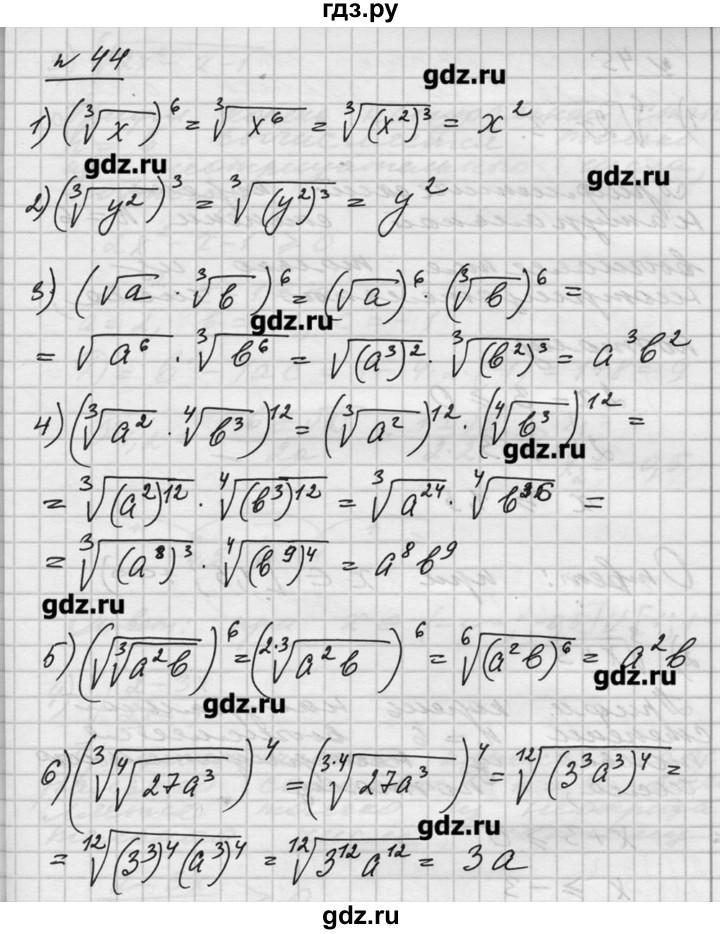 гдз.ру
№ 44
gdz.ru
1) (∛x)⁶ = ∛x⁶ = ∛(x²)³ = x²
gdz.ru
gdz.ru
2) (∛y²)³ = ∛(y²)³ = y²
3) (√a · ∛b)⁶ = (√a)⁶ · (∛b)⁶ =
gdz.ru
= √a⁶ · ∛b⁶ = √(a³)² · ∛(b²)³ = a³b²
4) (∛a² · ∜b³)¹² = (∛a²)¹² · (∜b³)¹² =
gdz.ru
= ∛(a²)¹² · ∜(b³)¹² = ∛a²⁴ · ∜b³⁶ =
= ∛(a⁸)³ · ∜(b⁹)⁴ = a⁸b⁹
gdz.ru
5) (√∛a²b)⁶ = (²·³√a²b)⁶ = ⁶√(a²b)⁶ = a²b
gdz.ru
gdz.ru
6) (∛∜27a³)⁴ = (³·⁴√27a³)⁴ = ¹²√(3³a³)⁴ =
gdz.ru
= ¹²√(3³)⁴(a³)⁴ = ¹²√3¹²a¹² = 3a
gdz.ru